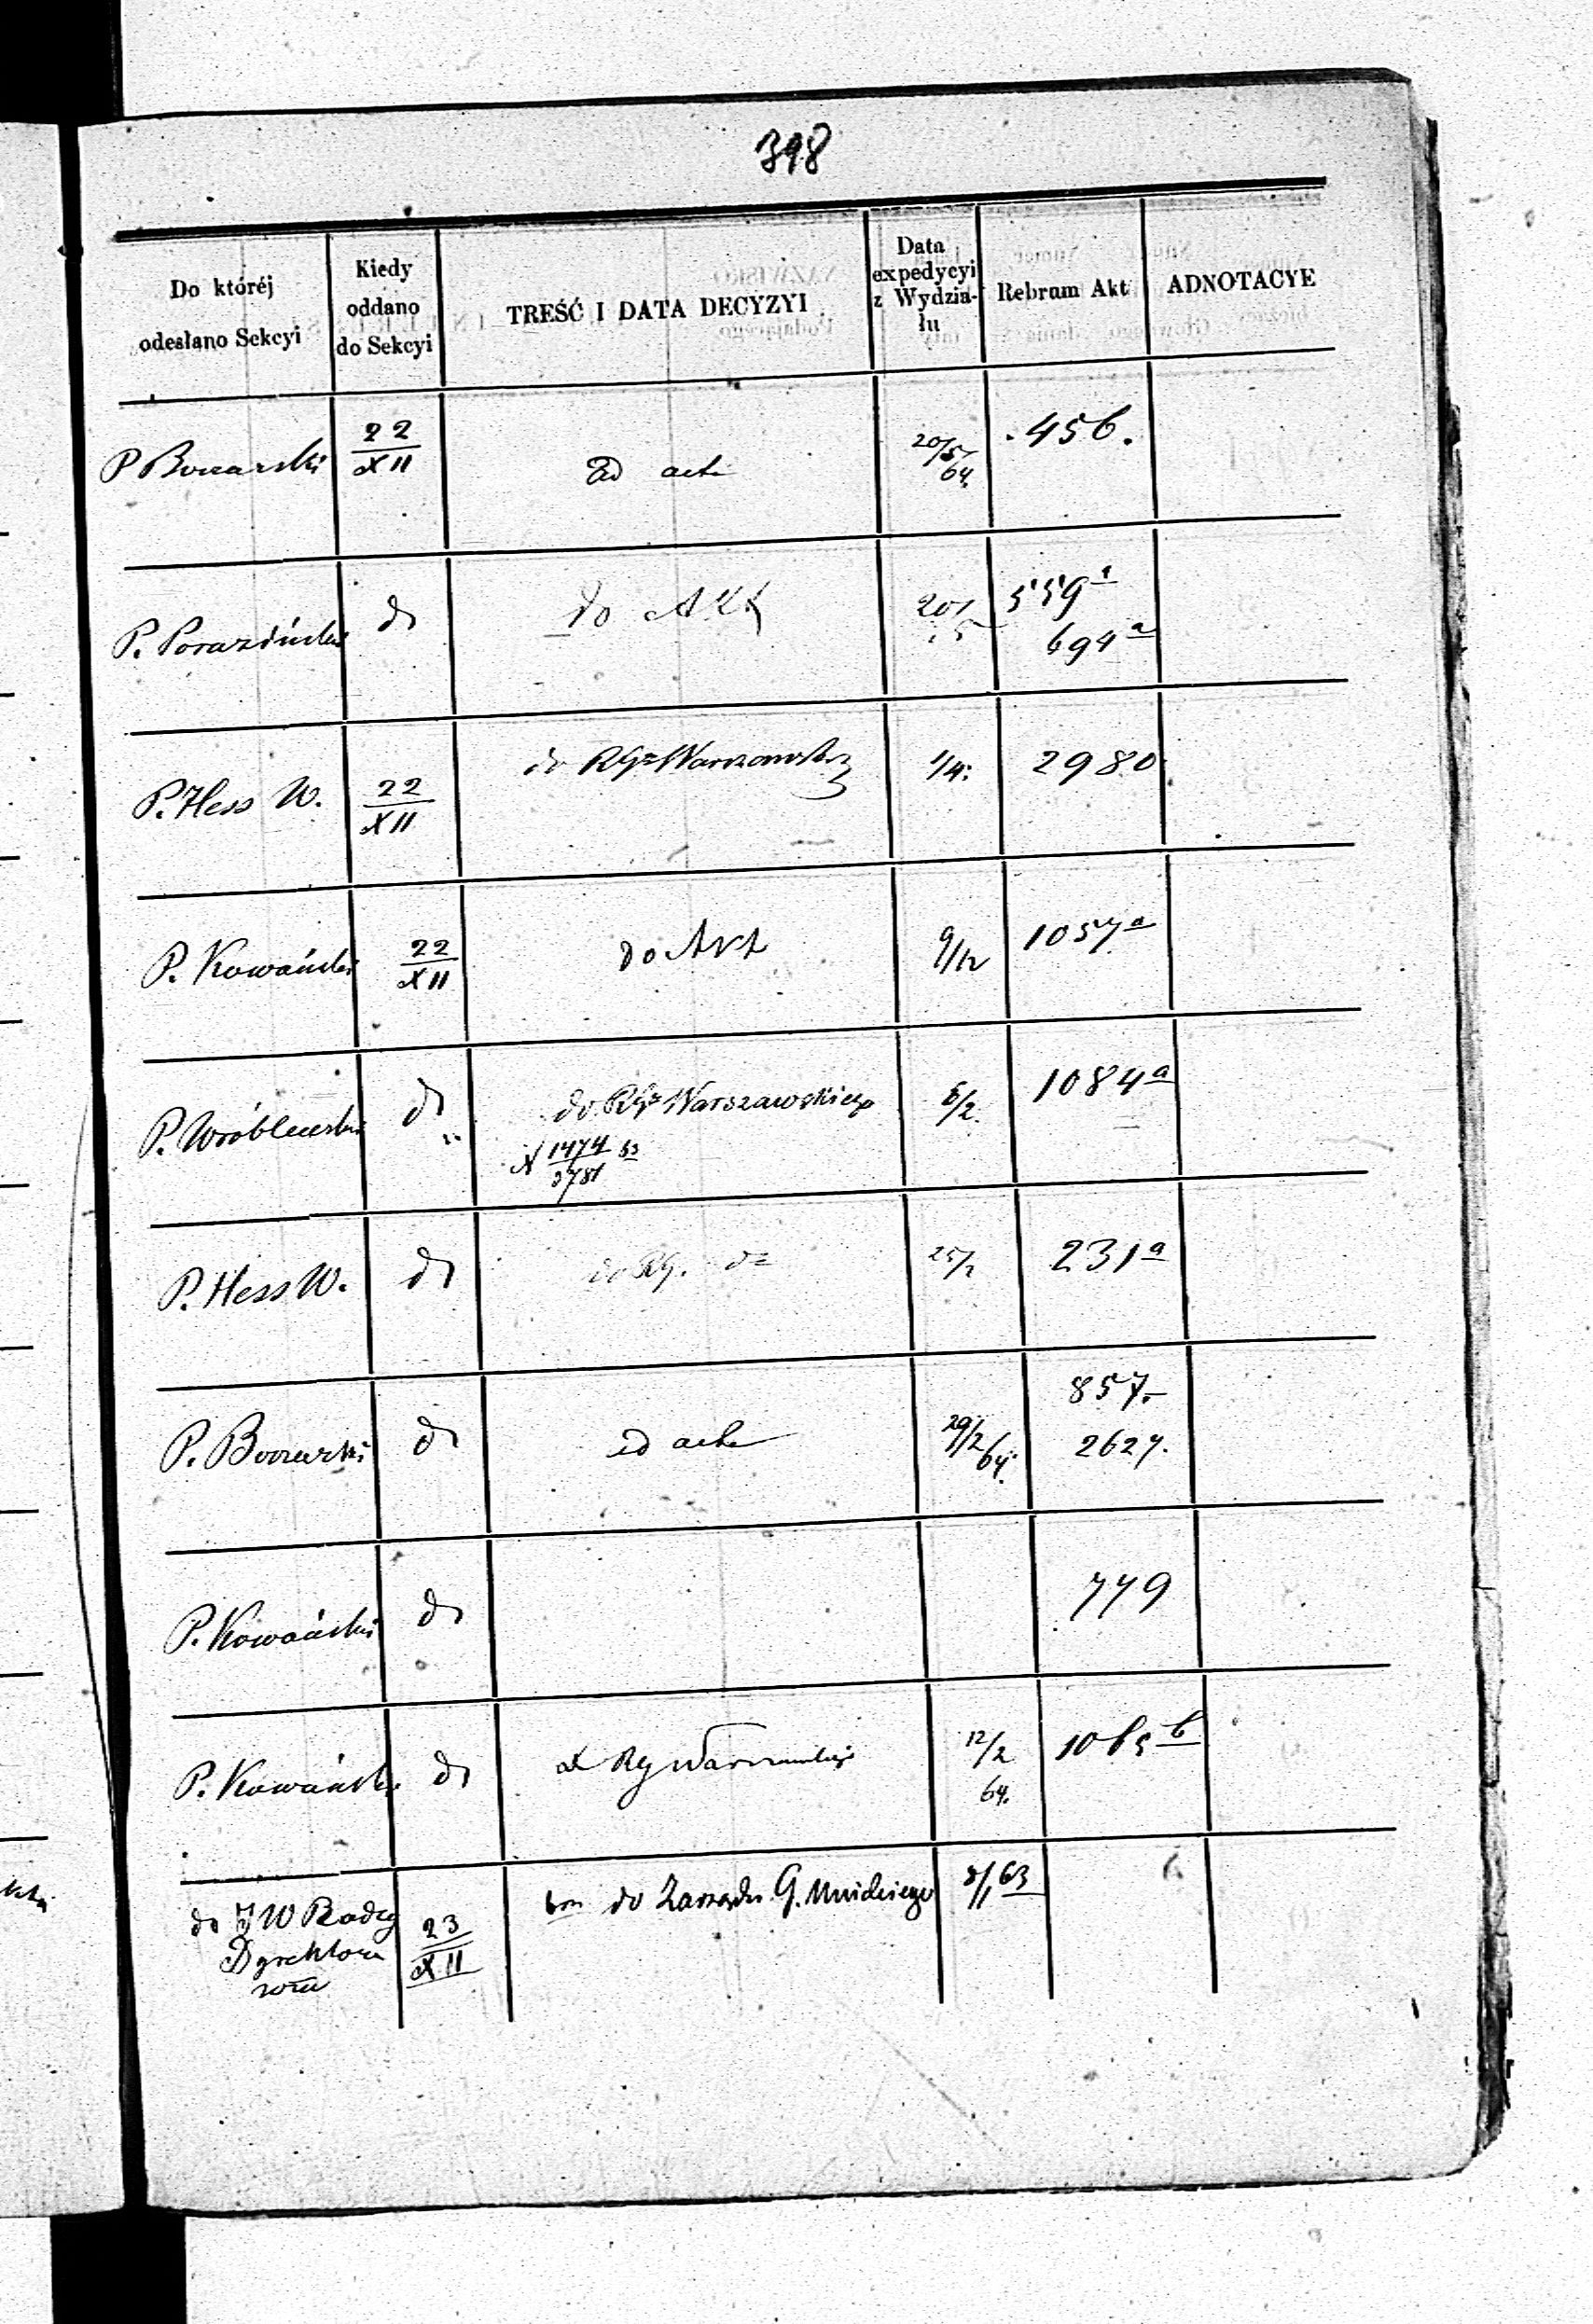 398
Do któréj
odesłano Sekcyi
Kiedy
oddano
do Sekcyi
TREŚĆ I DATA DECYZYI
Data
expedycyi
z Wydzia-
łu
Rebrum Akt
ADNOTACYE
P
22
XII
ad acta
20/5
64.
456.
P. Poraziński
do
do Akt
20/5
559
694 a
P. Hess W.
22
XII
do RGo Warszawskiego
1/4.
2980
P. Kowański
22
XII
do Akt
9/12
1057 a
P. Wróblewski
do
do RGo Warszawskiego
N 1474 63
3781
6/2.
1084 a
P. Hess W.
do
do RG. do
25/2
231 a
P.
do
ad acta
29/2
64.
857.
2627.
P. Kowański
do
779
P. Kowański
do
RG Warszawskiego
12/2
64.
b
do JW Radcy
Dyrektora
23
XII
do Zarządu G.
63